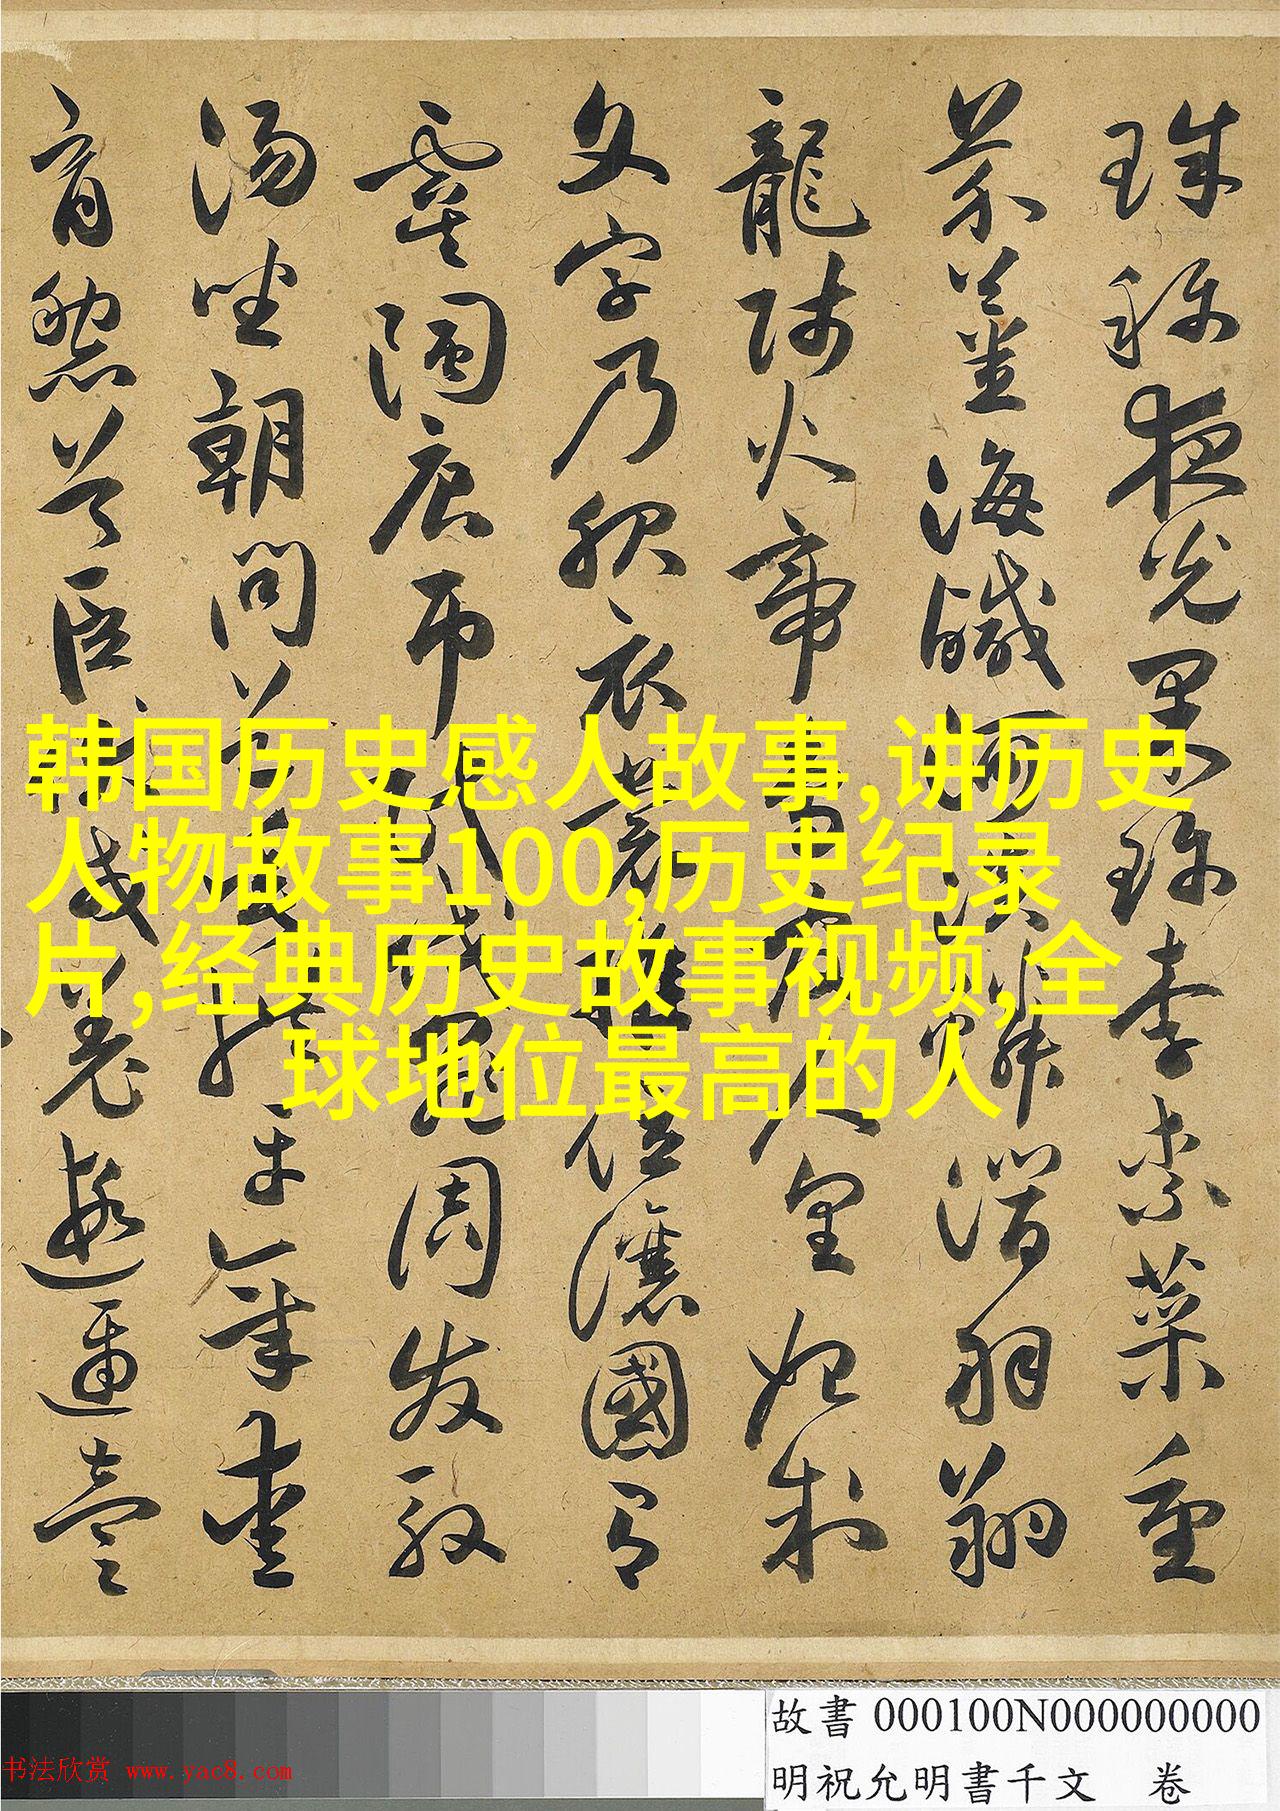 珠稱夜光果珍李柰菜重
芥薑海鹹河淡鱗潛羽翔
龍師火帝鳥官人皇始制
文字乃服衣裳推位讓國有
虞陶唐弔民伐罪周發殷
湯坐朝問道垂拱平章愛
育黎首臣伏戎羌遐邇壹
韩国历史感人故事,讲历史
人物故事100,历史纪录
片,经典历史故事视频,全
球地位最高的人
故書 000100N000000000
明祝允明書千文 卷
书法欣赏 www.yac8.com